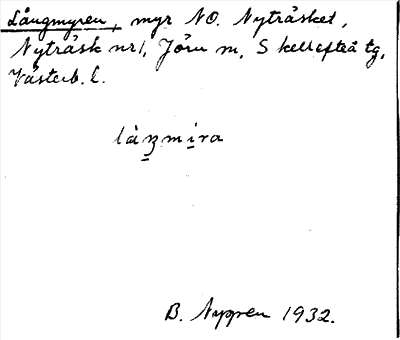 Långmyren, myr NO. Nyträsket,
Nyträsk nr 1, Jörn m, Skellefteå tg,
Västerb. l.
B. Nyppen 1932.